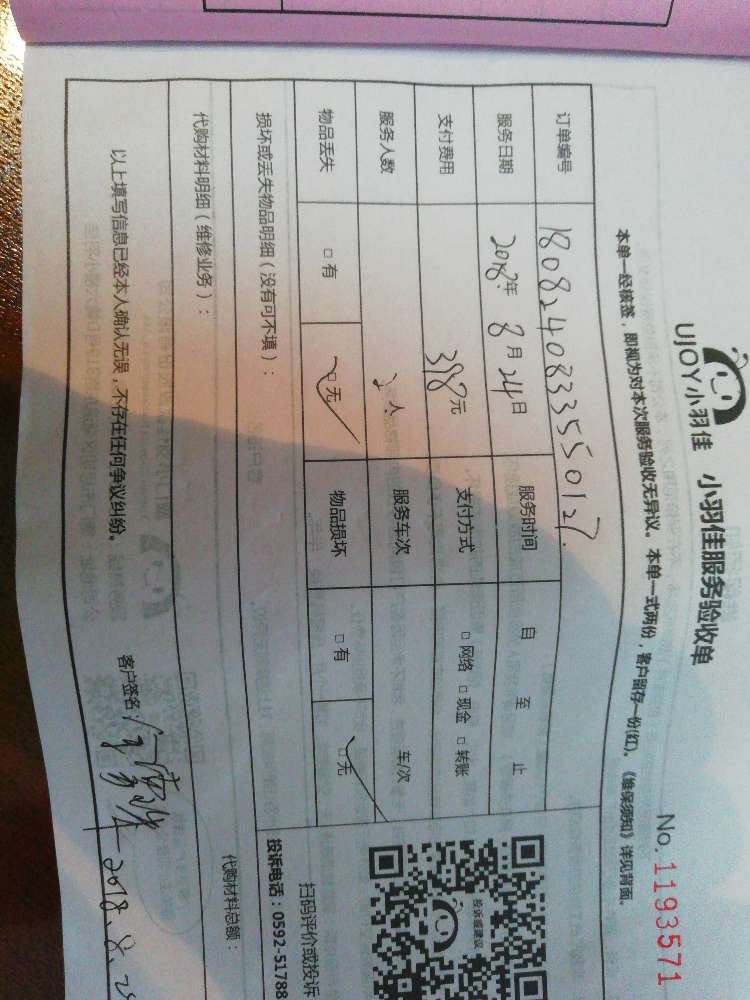 UJOY小羽佳 小羽佳服务验收单 No.1193571
本单一经核签，即视为对本次服务验收无异议。本单一式两份，客户留存一份(红)。《维保须知》详见背面。
订单编号 18082408333550127.
服务日期 2018年8月24日 服务时间 自 至 止
支付费用 398元 支付方式 □网络 □现金 □转账
服务人数 2人 服务车次 车/次
物品丢失 □有 □无 物品损坏 □有 □无
损坏或丢失物品明细（没有可不填）：
投诉或建议
扫码评价或投诉
投诉电话：0592-51788
代购材料明细（维修业务）： 代购材料总额：
以上填写信息已经本人确认无误，不存在任何争议纠纷。 客户签名： 2018.8.2